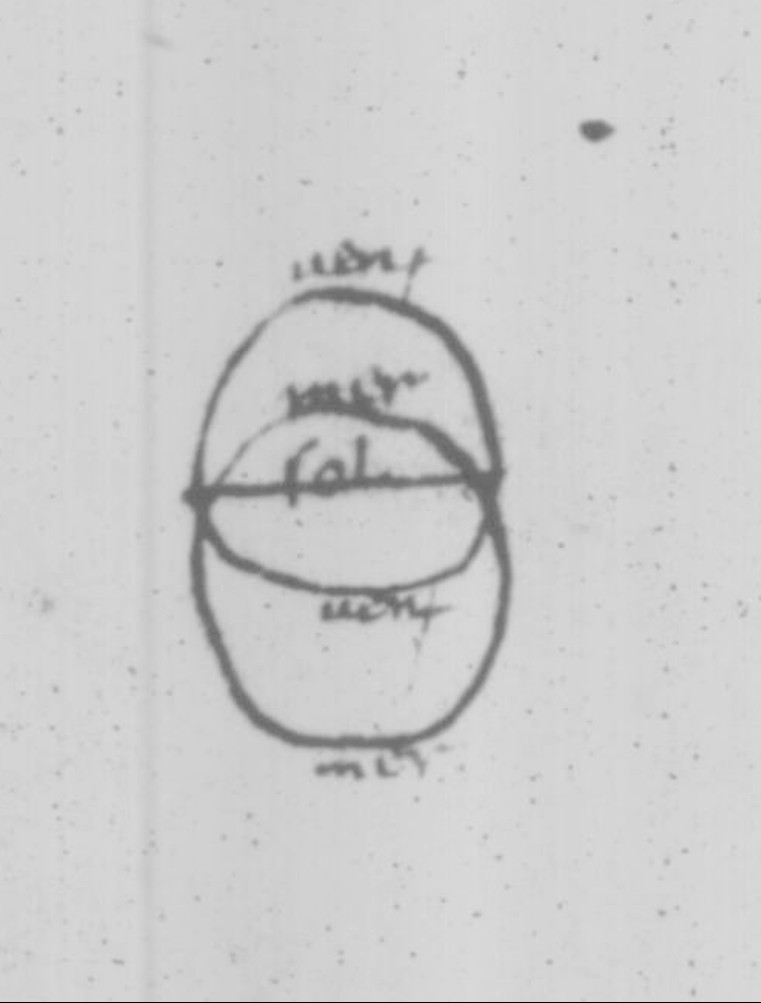 uen
mer
sol
uen
mer